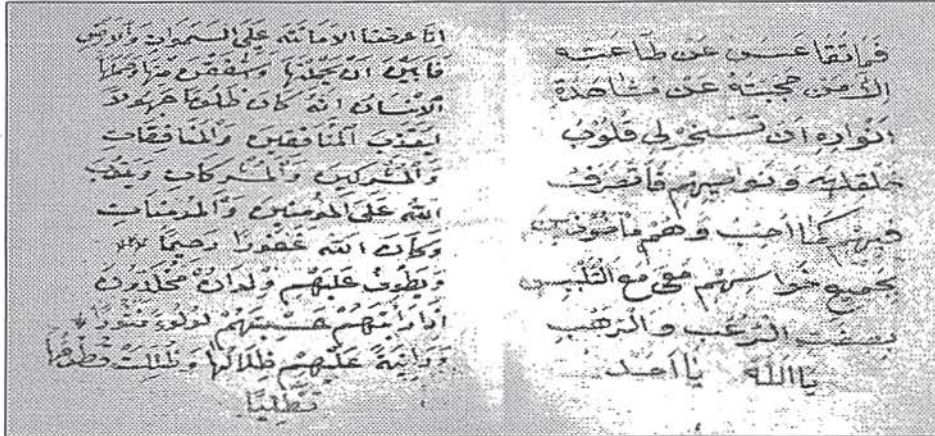 فما تقاعس عن طاعته
الا من حجبته عن مشاهدة
انواره ان تسخر لي قلوب
ونواصيهم فاتصرف
فيهم كما احب وهم ماخوذين
بجميع حواسهم معي مع التلبس
بصفت الرغب والرهب
يا الله يا احد
انا عرضنا الامانته على السموات والارض
فابين ان يحملنها واشفقن منها وحملها
الانسان انه كان ظلوما جهولا
ليعذب المنافقين والمنافقات
والمشركين والمشركات ويتوب
الله على المومنين والمومنات
وكان الله غفورا رحيما
ويطوف عليهم ولدان مخلدون
اذا رايتهم حسبتهم لولوء منثورا
ودانية عليهم ظلالها وذللت قطوفها
تذليلا